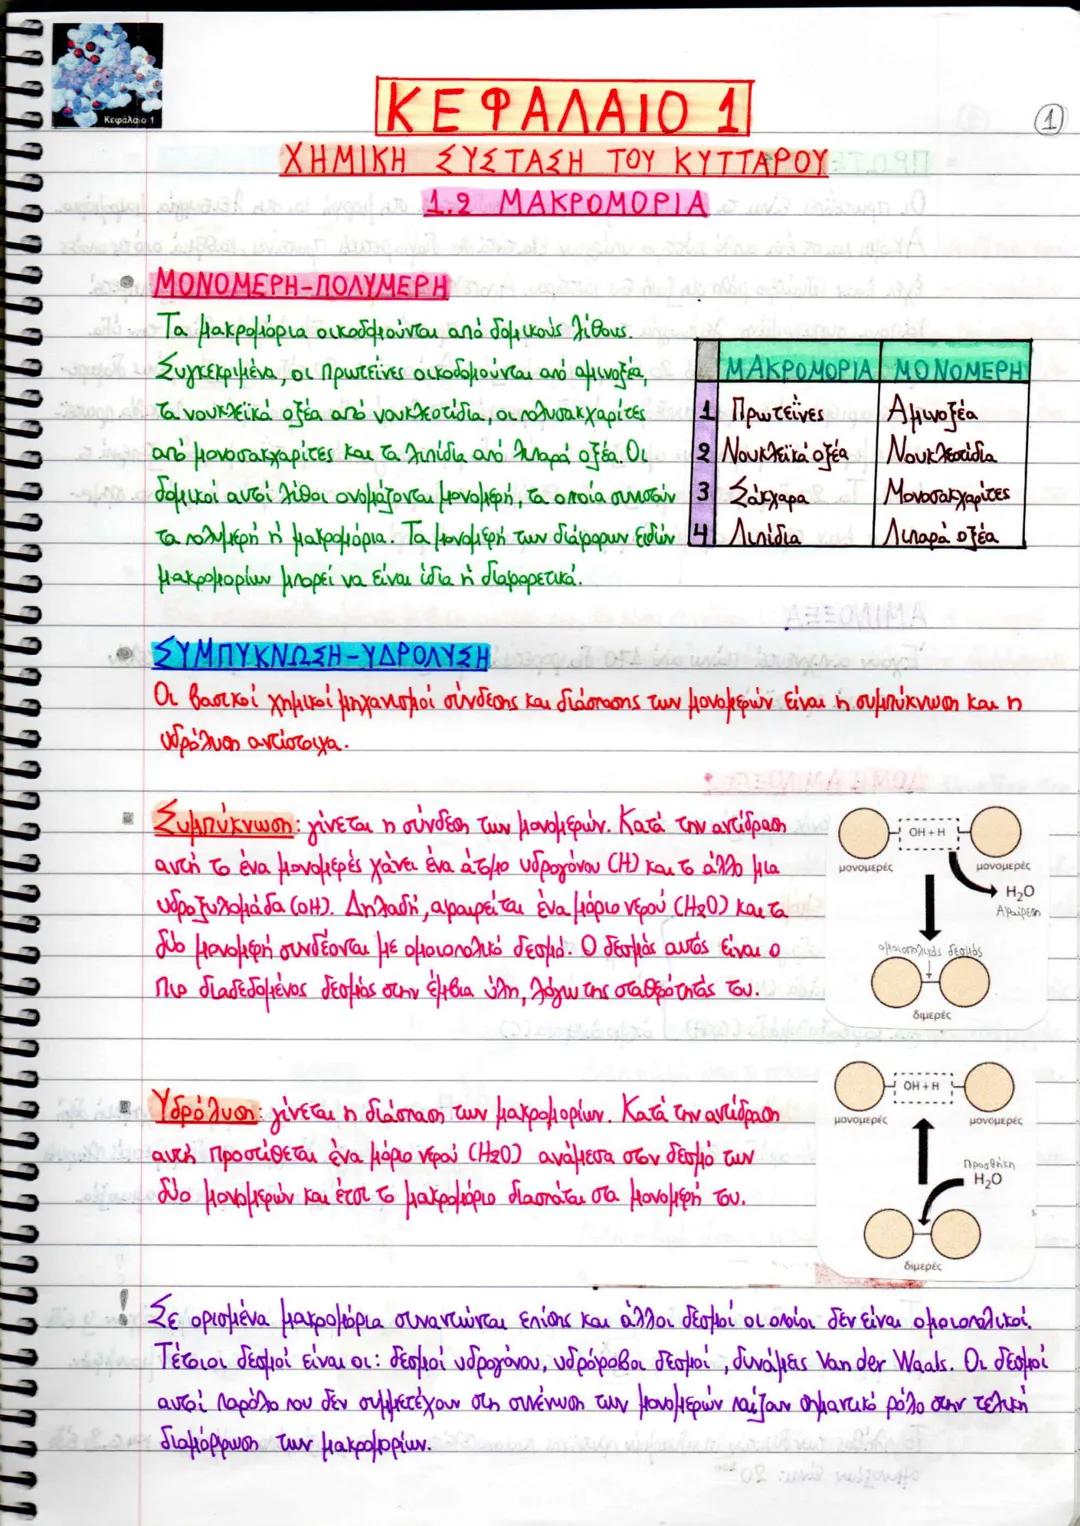 Κεφάλαιο 1
ΚΕΦΑΛΑΙΟ 1
1
ΧΗΜΙΚΗ ΣΥΣΤΑΣΗ ΤΟΥ ΚΥΤΤΑΡΟΥ
1.2 ΜΑΚΡΟΜΟΡΙΑ
ΜΟΝΟΜΕΡΗ-ΠΟΛΥΜΕΡΗ
Τα μακρομόρια οικοδομούνται από δομικούς λίθους.
Συγκεκριμένα, οι πρωτεΐνες οικοδομούνται από αμινοξέα,
τα νουκλεϊκά οξέα από νουκλεοτίδια, οι πολυσακχαρίτες
από μονοσακχαρίτες και τα λιπίδια από λιπαρά οξέα. Οι
δομικοί αυτοί λίθοι ονομάζονται μονομερή, τα οποία συνιστούν
τα πολυμερή ή μακρομόρια. Τα μονομερή των διάφορων ειδών
μακρομορίων μπορεί να είναι ίδια ή διαφορετικά.
ΜΑΚΡΟΜΟΡΙΑ ΜΟΝΟΜΕΡΗ
1 Πρωτεΐνες Αμινοξέα
2 Νουκλεϊκά οξέα Νουκλεοτίδια
3 Σάκχαρα Μονοσακχαρίτες
4 Λιπίδια Λιπαρά οξέα
ΣΥΜΠΥΚΝΩΣΗ-ΥΔΡΟΛΥΣΗ
Οι βασικοί χημικοί μηχανισμοί σύνδεσης και διάσπασης των μονομερών είναι η συμπύκνωση και η
υδρόλυση αντίστοιχα.
Συμπύκνωση: γίνεται η σύνδεση των μονομερών. Κατά την αντίδραση
αυτή το ένα μονομερές χάνει ένα άτομο υδρογόνου (Η) και το άλλο μια
υδροξυλομάδα (ΟΗ). Δηλαδή, αφαιρείται ένα μόριο νερού (H2O) και τα
δύο μονομερή συνδέονται με ομοιοπολικό δεσμό. Ο δεσμός αυτός είναι ο
πιο διαδεδομένος δεσμός στην έμβια ύλη, λόγω της σταθερότητάς του.
OH + H
μονομερές
μονομερές
H₂O
Αφαίρεση
ομοιοπολικός δεσμός
διμερές
Υδρόλυση: γίνεται η διάσπαση των μακρομορίων. Κατά την αντίδραση
αυτή προστίθεται ένα μόριο νερού (H2O) ανάμεσα στον δεσμό των
δύο μονομερών και έτσι το μακρομόριο διασπάται στα μονομερή του.
OH + H
μονομερές
μονομερές
Προσθήκη
H₂O
διμερές
! Σε ορισμένα μακρομόρια συναντώνται επίσης και άλλοι δεσμοί οι οποίοι δεν είναι ομοιοπολικοί.
Τέτοιοι δεσμοί είναι οι: δεσμοί υδρογόνου, υδρόφοβοι δεσμοί, δυνάμεις Van der Waals. Οι δεσμοί
αυτοί παρόλο που δεν συμμετέχουν στη συνένωση των μονομερών παίζουν σημαντικό ρόλο στην τελική
διαμόρφωση των μακρομορίων.